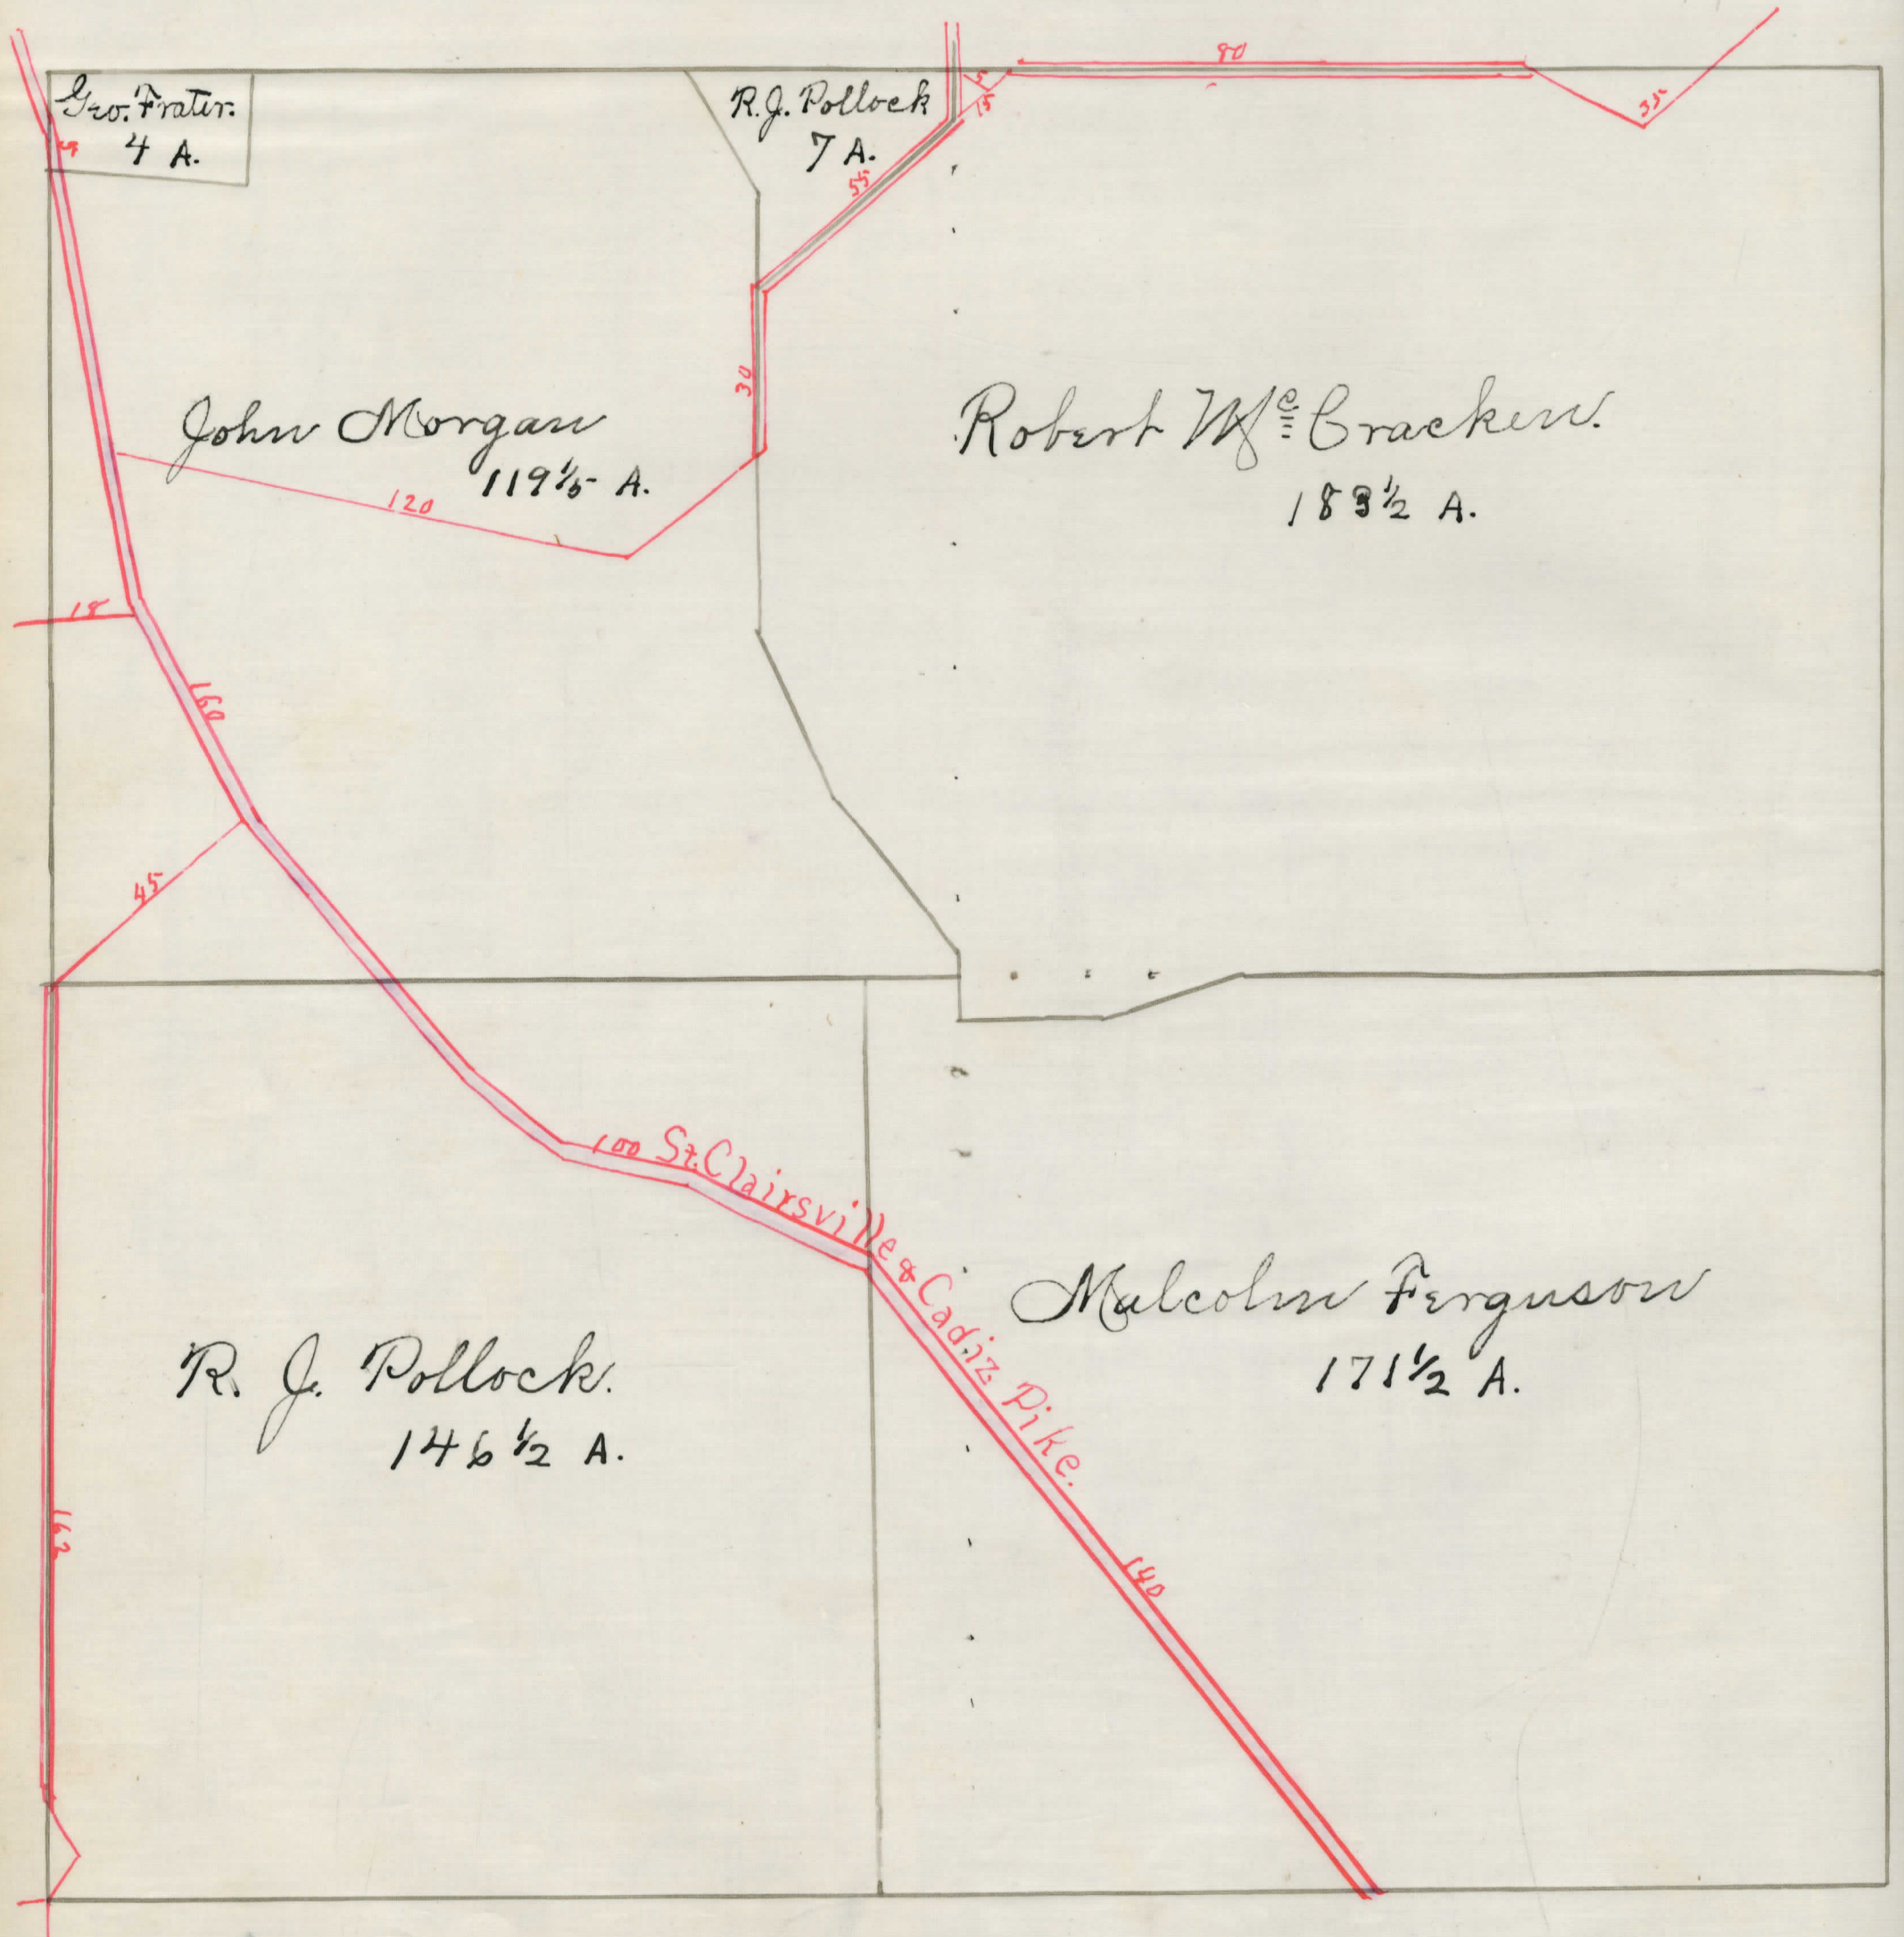 80
5
15
35
Geo. Frater.
4 A.
5
R. J. Pollock
7 A.
55
30
John Morgan
119 1/5 A.
120
Robert Mc Cracken.
183 1/2 A.
18
160
45
100 St. Clairsville & Cadiz Pike.
R. J. Pollock.
146 1/2 A.
Malcolm Ferguson
171 1/2 A.
162
140